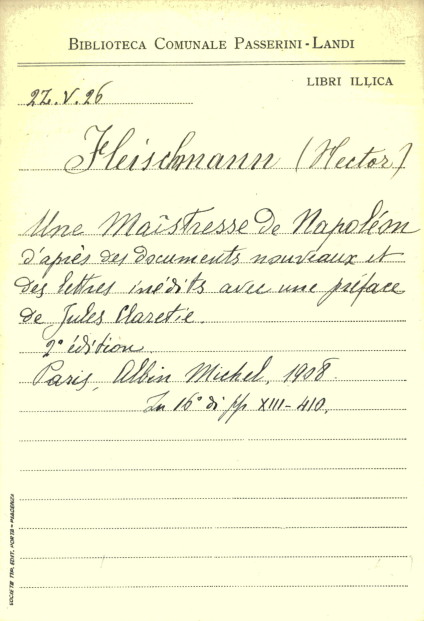 BIBLIOTECA COMUNALE PASSERINI-LANDI
LIBRI ILLICA
22.V.26
Fleischmann (Hector)
Une Maîstresse de Napoléon
d'après des documents nouveaux et
des lettres inédits avec une préface
de Jules Claretie.
2° édition
Paris, Albin Michel, 1908.
In 16° di pp XIII-410.
SOCIETÀ TIP. EDIT. PORTA - PIACENZA